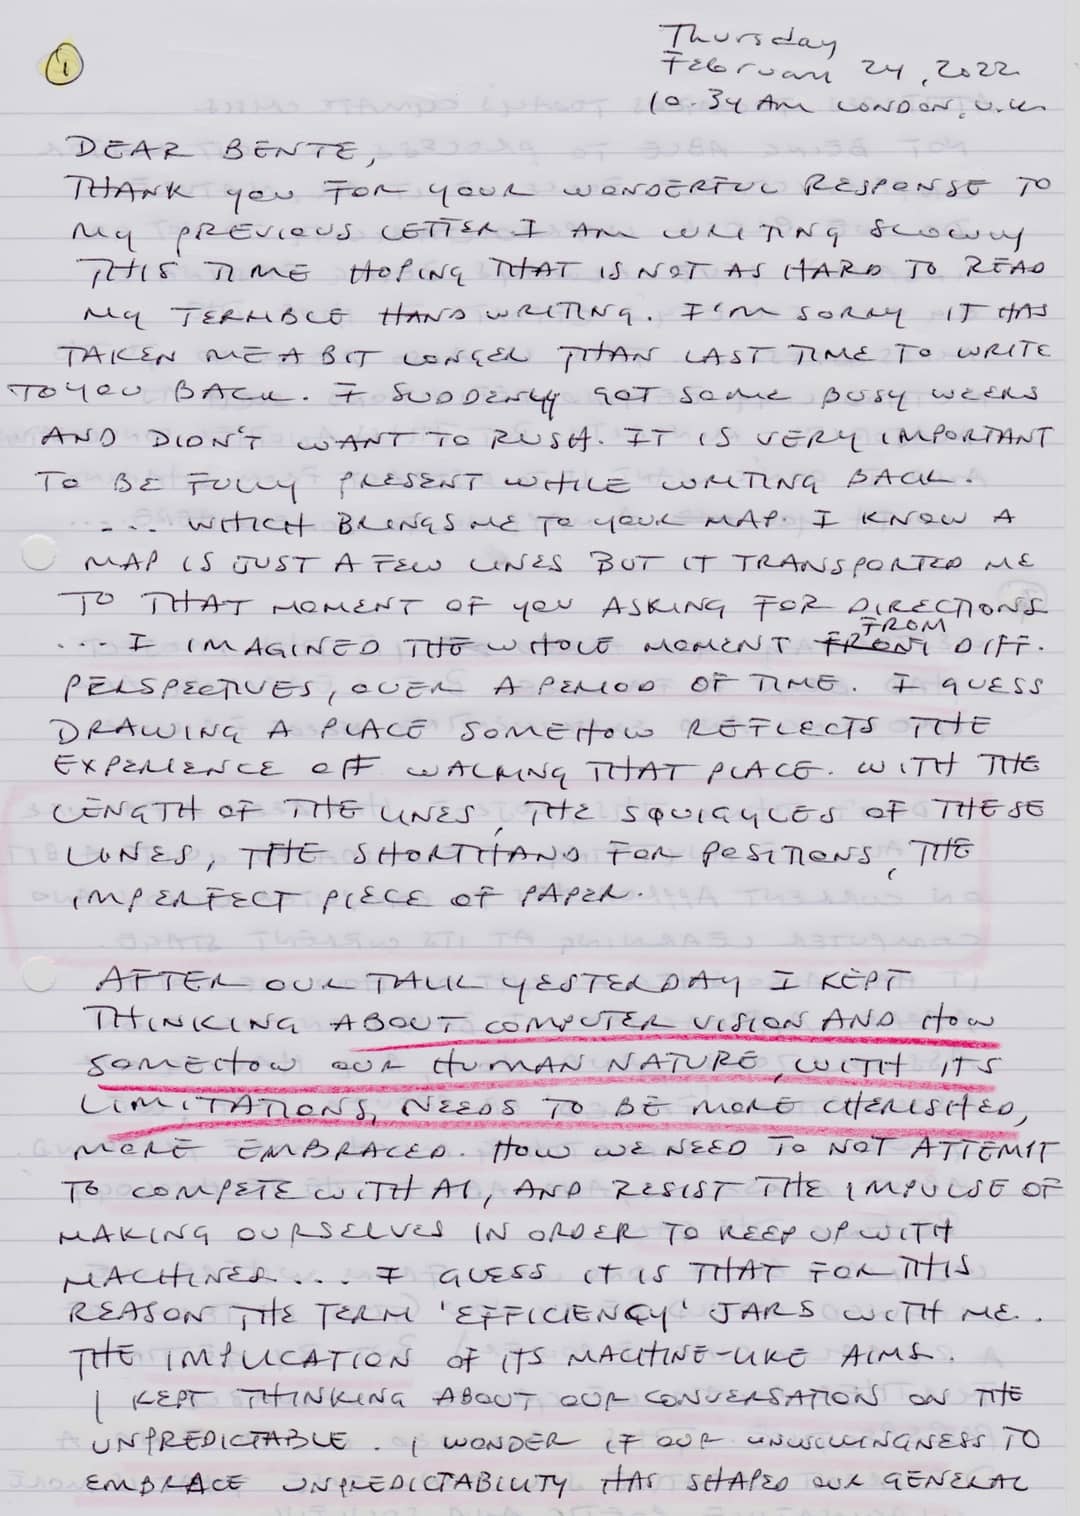 1
Thursday
February 24, 2022
10.34 AM LONDON, U.K.
DEAR BENTE,
THANK YOU FOR YOUR WONDERFUL RESPONSE TO
MY PREVIOUS LETTER I AM WRITING SLOWLY
THIS TIME HOPING THAT IS NOT AS HARD TO READ
MY TERRIBLE HAND WRITING. I'M SORRY IT HAS
TAKEN ME A BIT LONGER THAN LAST TIME TO WRITE
TO YOU BACK. I SUDDENLY GOT SOME BUSY WEEKS
AND DIDN'T WANT TO RUSH. IT IS VERY IMPORTANT
TO BE FULLY PRESENT WHILE WRITING BACK.
... WHICH BRINGS ME TO YOUR MAP. I KNOW A
MAP IS JUST A FEW LINES BUT IT TRANSPORTED ME
TO THAT MOMENT OF YOU ASKING FOR DIRECTIONS
FROM
... I IMAGINED THE WHOLE MOMENT DIFF.
PERSPECTIVES, OVER A PERIOD OF TIME. I GUESS
DRAWING A PLACE SOMEHOW REFLECTS THE
EXPERIENCE OF WALKING THAT PLACE. WITH THE
LENGTH OF THE LINES, THE SQUIGGLES OF THESE
LINES, THE SHORTHAND FOR POSITIONS, THE
IMPERFECT PIECE OF PAPER.
AFTER OUR TALK YESTERDAY I KEPT
THINKING ABOUT COMPUTER VISION AND HOW
SOMEHOW OUR HUMAN NATURE, WITH ITS
LIMITATIONS, NEEDS TO BE MORE CHERISHED,
MORE EMBRACED. HOW WE NEED TO NOT ATTEMPT
TO COMPETE WITH AI, AND RESIST THE IMPULSE OF
MAKING OURSELVES IN ORDER TO KEEP UP WITH
MACHINES... I GUESS IT IS THAT FOR THIS
REASON THE TERM 'EFFICIENCY' JARS WITH ME..
THE IMPLICATION OF ITS MACHINE-LIKE AIMS.
I KEPT THINKING ABOUT OUR CONVERSATION ON THE
UNPREDICTABLE. I WONDER IF OUR UNWILLINGNESS TO
EMBRACE UNPREDICTABILITY HAS SHAPED OUR GENERAL